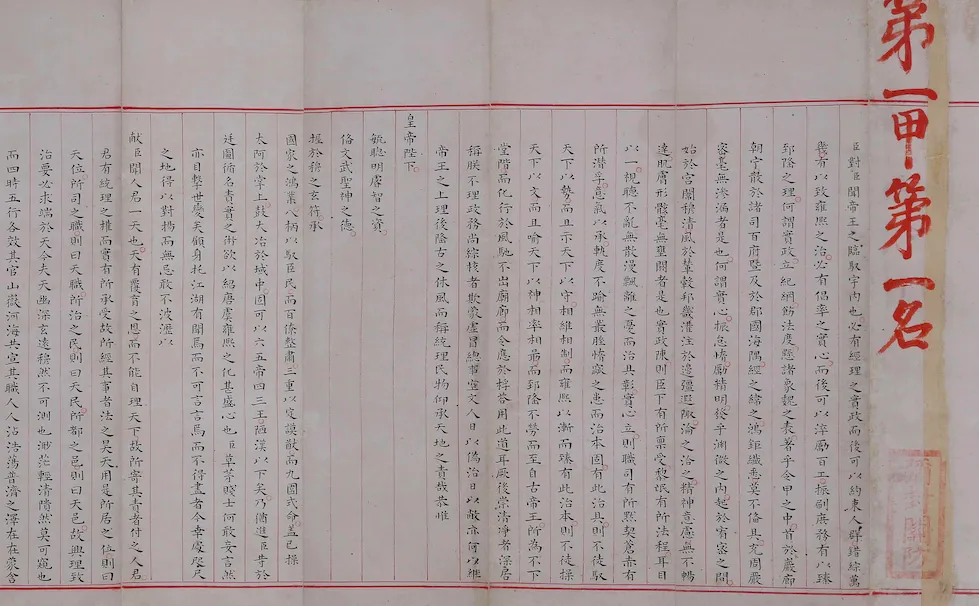 第一甲第一名
臣對臣聞帝王之臨馭宇內也必有經理之實政而後可以約束人群錯綜萬
幾有以致雍熙之治必有倡率之實心而後可以淬勵百工振刷庶務有以臻
郅隆之理何謂實政立紀綱飭法度懸諸象魏之表著乎令甲之中首於巖廊
朝宁散於諸司百府暨及於郡國海隅經之緯之鴻鉅纖悉莫不備具充周嚴
密毫無滲漏者是也何謂實心振怠惰勵精明發乎淵微之內起於宥密之間
始於宮闈穆清風於輦轂邦畿灌注於邊疆遐陬淪之洽之精神意慮無不暢
達肌膚形骸毫無壅閼者是也實政陳則臣下有所稟受黎氓有所法程耳目
以一視聽不亂無散漫飄離之憂而治具彰實心立則職司有所默契蒼赤有
所潛孚意氣以承軌度不踰無叢脞惰窳之患而治本固有此治具則不徒馭
天下以勢而且示天下以守相維相制而雍熙以漸而臻有此治本則不徒操
天下以文而且喻天下以神相率相勗而郅隆不勞而至自古帝王所為不下
堂階而化行於風馳不出廟廊而令應於桴答用此道耳厥後崇清淨者深居
稱朕不理政務尚綜核者欺蒙虛冒總事空文人日以偽治日以敝亦何以繼
帝王之上理後隆古之休風而稱統理民物仰承天地之責哉恭惟
皇帝陛下
毓聰明睿智之資
備文武聖神之德
握於穆之玄符承
國家之鴻業八柄以馭臣民而百僚整肅三重以定謨猷而九圍式命蓋已操
太阿於掌上鼓大冶於域中固可以六五帝四三王陋漢以下矣乃猶進臣等於
廷圖循名責實之術欲以紹唐虞雍熙之化甚盛心也臣草茅賤士何敢妄言然
亦目擊世變矣顧身托江湖有聞焉而不可言言焉而不得盡者今幸處咫尺
之地得以對揚而無忌敢不披瀝以
獻臣聞人君一天也天有覆育之恩而不能自理天下故所寄其責者付之人君
君有統理之權而實有所承受故所經其事者法之昊天用是所居之位則曰
天位所司之職則曰天職所治之民則曰天民所都之邑則曰天邑故興理致
治要必求端於天今夫天幽深玄遠穆然不可測也渺茫輕清隤然莫可窺也
而四時五行各效其官山嶽河海共宣其職人人沾浩蕩普濟之澤在在蒙含